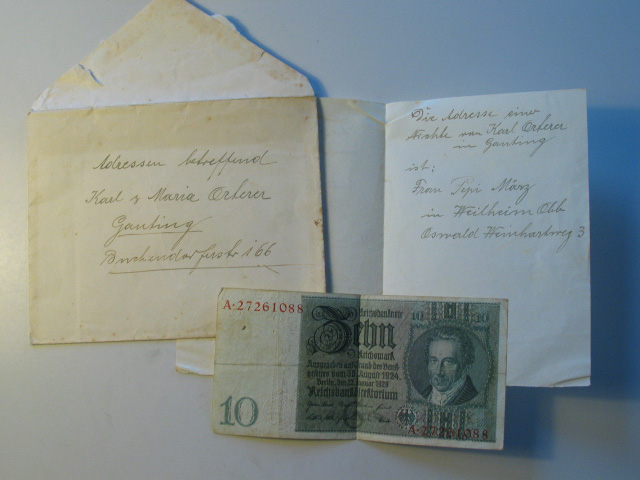 Adressen betreffend
Karl & Maria Orterer
Gauting
Buchendorferstr 166
Die Adresse einer
Nichte von Karl Orterer
in Gauting
ist:
Frau Pepi März
in Weilheim Obb
Oswald Weinhartweg 3
A·27261088
Reichsbanknote
10
Zehn
Reichsmark
Ausgegeben auf Grund des Bank-
gesetzes vom 30. August 1924
Berlin, den 22. Januar 1929
Reichsbankdirektorium
10
A·27261088